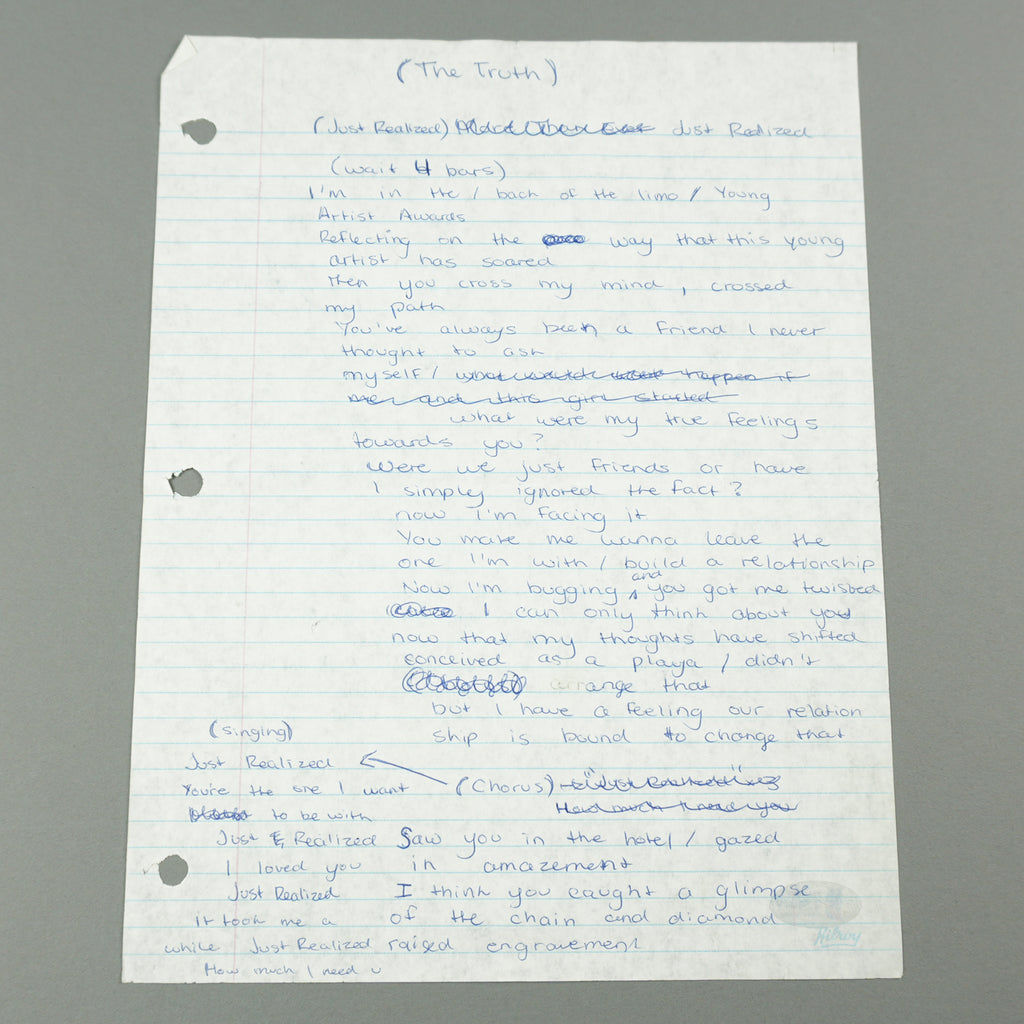 (The Truth)
(Just Realized) Just Realized
(wait 4 bars)
I'm in the / back of the limo / Young
Artist Awards
Reflecting on the way that this young
artist has soared
Then you cross my mind, crossed
my path
You've always been a friend I never
thought to ask
myself / what would happen if
me and this girl started
what were my true feelings
towards you?
Were we just friends or have
I simply ignored the fact?
now I'm facing it
You make me wanna leave the
one I'm with / build a relationship
Now I'm bugging and you got me twisted
I can only think about you
now that my thoughts have shifted
conceived as a playa / didn't
arrange that
but I have a feeling our relation
ship is bound to change that
(Chorus) "Just Realized"
How much I need you
(singing)
Just Realized
You're the one I want
to be with
Just Realized
I loved you
Just Realized
it took me a
while Just Realized
How much I need u
Saw you in the hotel / gazed
in amazement
I think you caught a glimpse
of the chain and diamond
raised engravement
Hilroy